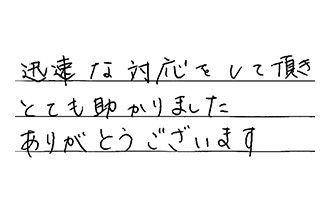 迅速な対応をして頂き
とても助かりました
ありがとうございます